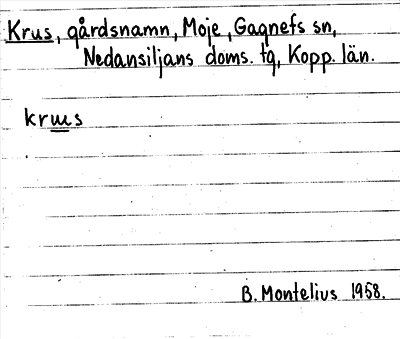 Krus, gårdsnamn, Moje, Gagnefs sn,
Nedansiljans doms. tg, Kopp. län.
krɯs
B. Montelius 1958.